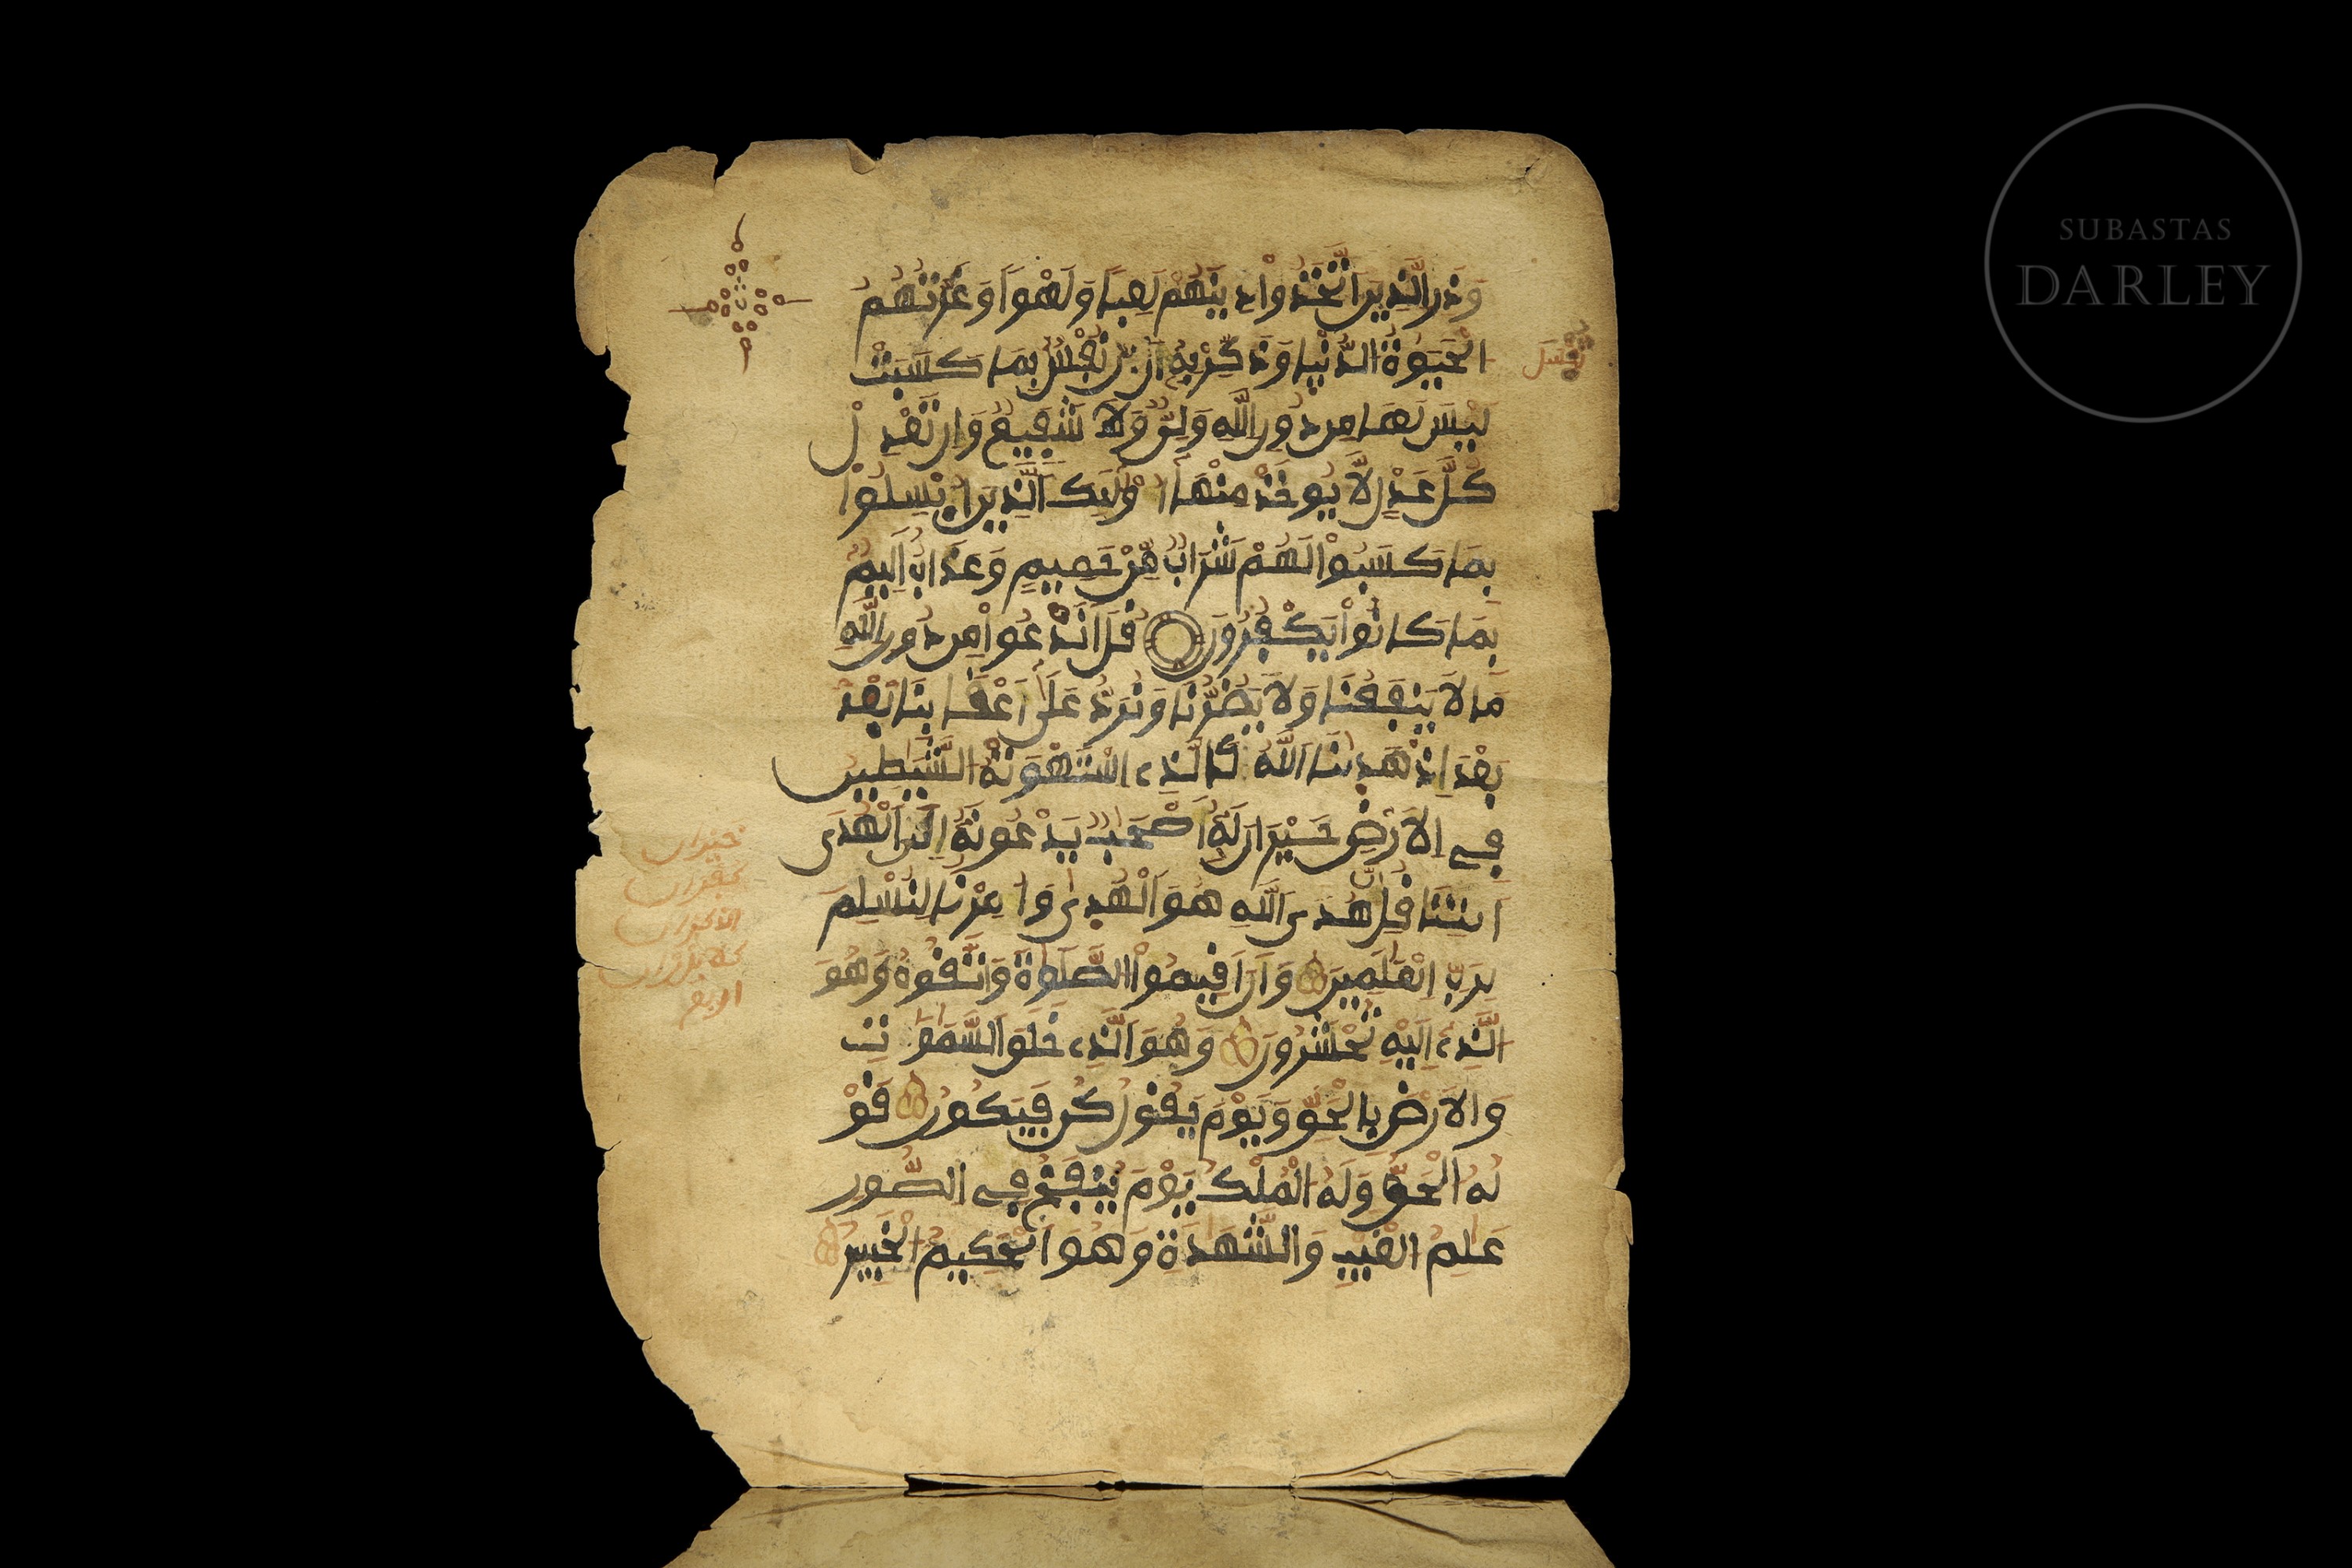 وَذَرِ الَّذِينَ اتَّخَذُواْ دِينَهُمْ لَعِبًا وَلَهْوًا وَغَرَّتْهُمُ
الْحَيَوٰةُ الدُّنْيَا وَذَكِّرْ بِهِ أَن بِمَا كَسَبَتْ
لَيْسَ لَهَا مِن دُونِ اللَّهِ وَلِيٌّ وَلَا شَفِيعٌ وَإِن تَعْدِلْ
كُلَّ عَدْلٍ لَّا يُوخَذْ مِنْهَا أُوْلَٰيِكَ الَّذِينَ ابْسِلُواْ
بِمَا كَسَبُواْ لَهُمْ شَرَابٌ مِّنْ حَمِيمٍ وَعَذَابٌ اَلِيمٌ
بِمَا كَانُواْ يَكْفُرُونَ قُلَ اَنَدْعُواْ مِن دُونِ اللَّهِ
مَا لَا يَنفَعُنَا وَلَا يَضُرُّنَا وَنُرَدُّ عَلَىٰ أَعْقَابِنَا بَعْدَ
بَعْدَ إِذْ هَدَيٰنَا اللَّهُ كَالَّذِي اسْتَهْوَتْهُ الشَّيَٰطِينُ
فِي الَارْضِ حَيْرَانَ لَهُ أَصْحَٰبٌ يَدْعُونَهُ إِلَى الْهُدَى
ايتِنَا قُلِ انَّ هُدَى اللَّهِ هُوَ الْهُدَىٰ وَأُمِرْنَا لِنُسْلِمَ
لِرَبِّ الْعَٰلَمِينَ وَأَنَ اَقِيمُواْ الصَّلَوٰةَ وَاتَّقُوهُ وَهُوَ
الَّذِي إِلَيْهِ تُحْشَرُونَ وَهُوَ الَّذِي خَلَقَ السَّمَٰوَٰتِ
وَالَارْضَ بِالْحَقِّ وَيَوْمَ يَقُولُ كُن فَيَكُونُ قَوْ
لُهُ الْحَقُّ وَلَهُ الْمُلْكُ يَوْمَ يُنفَخُ فِي الصُّورِ
عَٰلِمُ الْغَيْبِ وَالشَّهَٰدَةِ وَهُوَ الْحَكِيمُ الْخَبِيرُ
SUBASTAS
DARLEY